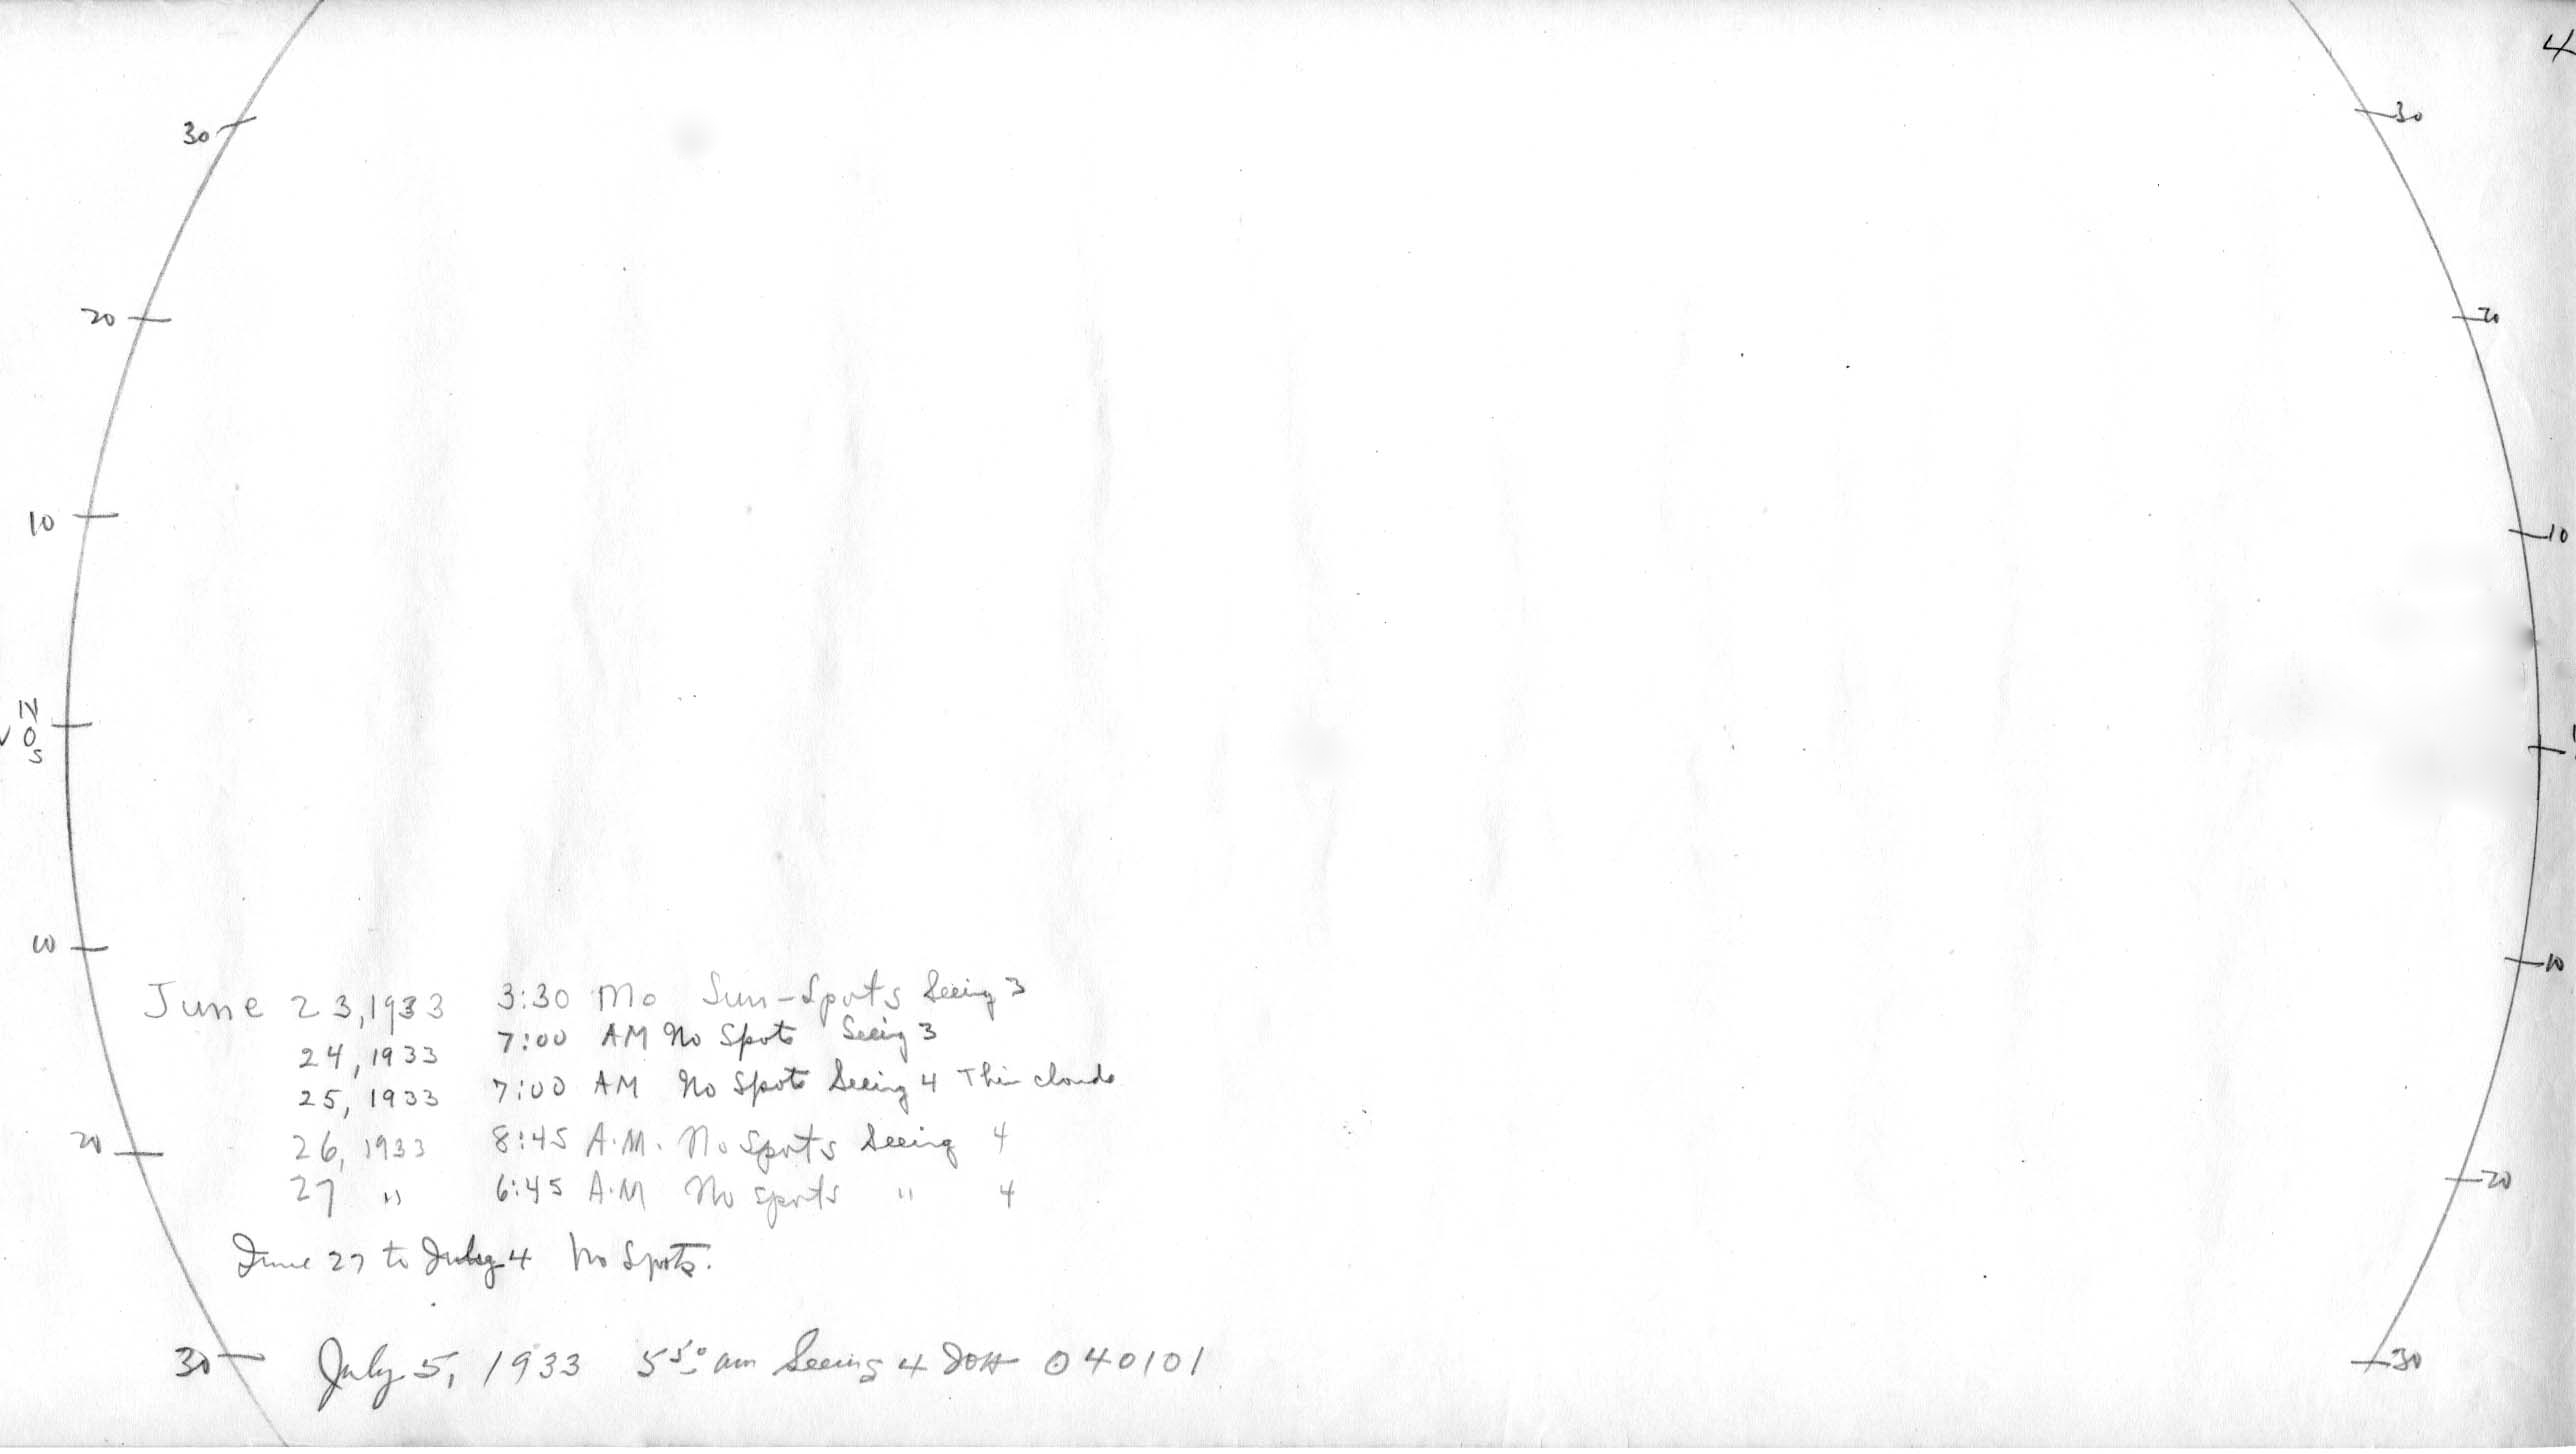 4
30 30
20 20
10 10
N
0
S
10 10
June 23, 1933 3:30 Mo Sun-Spots Seeing 3
24, 1933 7:00 AM No Spots Seeing 3
25, 1933 7:00 AM No Spots Seeing 4 Thin clouds
20 20
26, 1933 8:45 A.M. No Spots Seeing 4
27 " 6:45 A.M No spots " 4
June 27 to July 4 No Spots.
30 30
July 5, 1933 5 50 am Seeing 4 040101